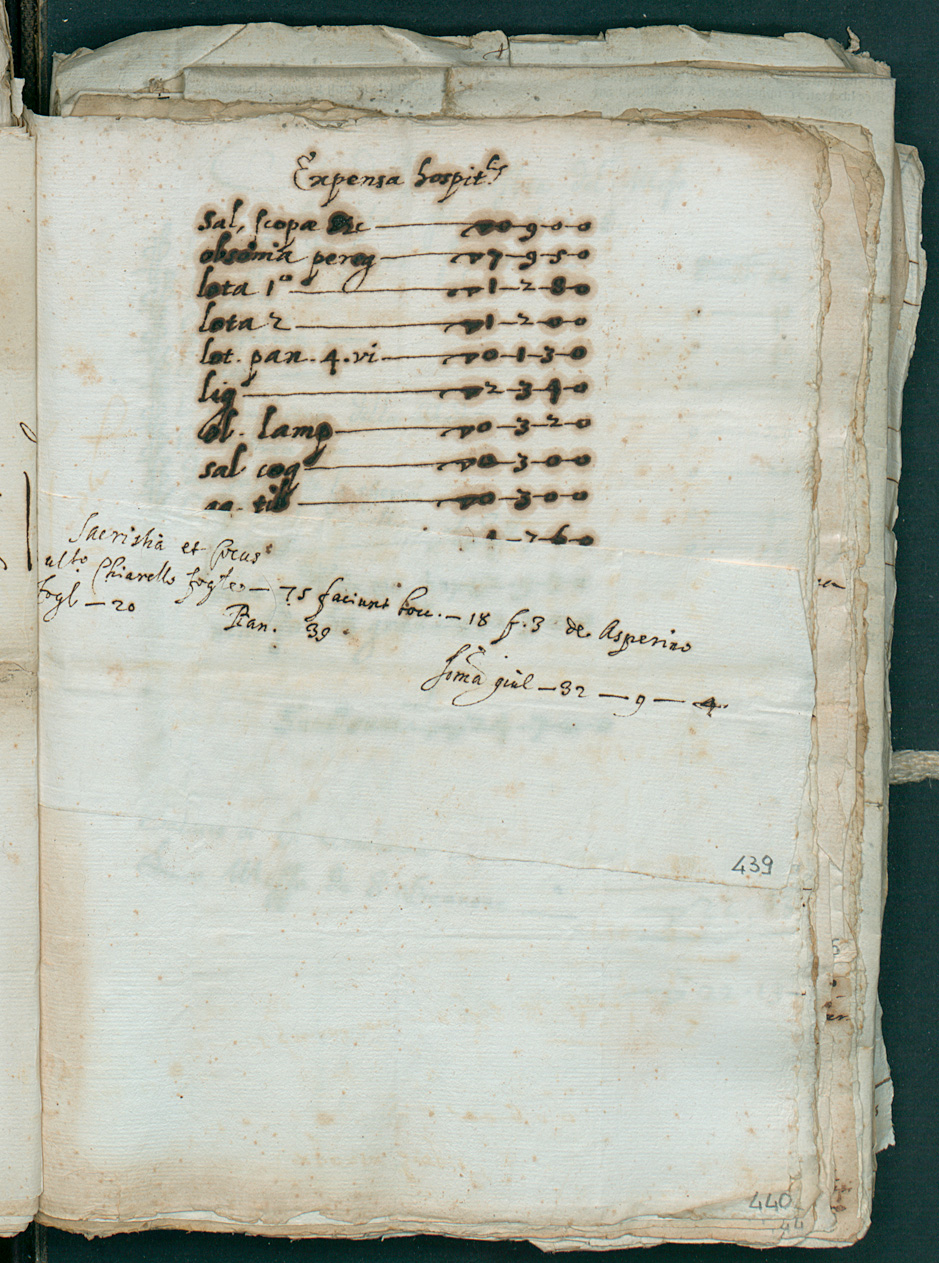 Expensa hospit.s
Sal, scopæ etc — 00-9-0-0
obsonia pereg — 7-9-5-0
lota 1ª — 1-2-8-0
lota 2 — 1-2-0-0
lot. pan. 4. vi — 0-1-3-0
lig — 2-3-4-0
ol. lamp — 0-3-2-0
sal coq — 0-3-0-0
0-3-0-0
1-7-6-0
Sacristia et
Chiarello fogl — 75 faciunt bocc. — 18 f. 3 de Asperino
fogl — 20 Pan. 39
somã giul — 32 — 9 — 4
439
440